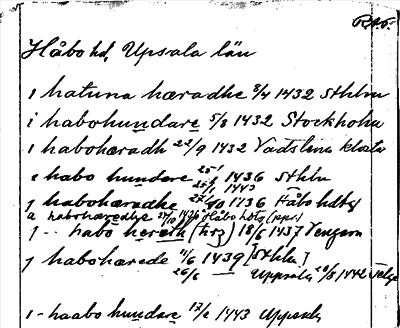 R.A.O.
Håbo hd, Upsala län
i hatuna hæradhe 3/4 1432 Sthlm
i habohundare 5/8 1432 Stockholm
i habohæradh 22/9 1432 Vadstena kloster
i habo hundare 25/1 1436 Sthlm
j habohæradhe 1436 Håbo hdtg
a habohæredhe 27/10 1436 Håbo hdtg (papr)
j -- habo hereth (hrz) 18/6 1437 Vengarn
j habohærede 11/6 1439 [Sthlm]
26/6 Uppsala 20/8 1442 Telge
i - haabo hundare 17/2 1443 Uppsala